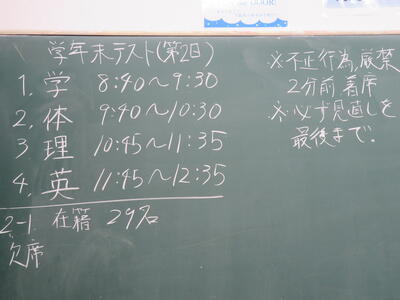 学年末テスト(第2日)
1. 学 8:40～9:30
2. 体 9:40～10:30
3 理 10:45～11:35
4. 英 11:45～12:35
2-1 在籍 29名
欠席
※不正行為厳禁
2分前着席
※必ず見直しを
最後まで。